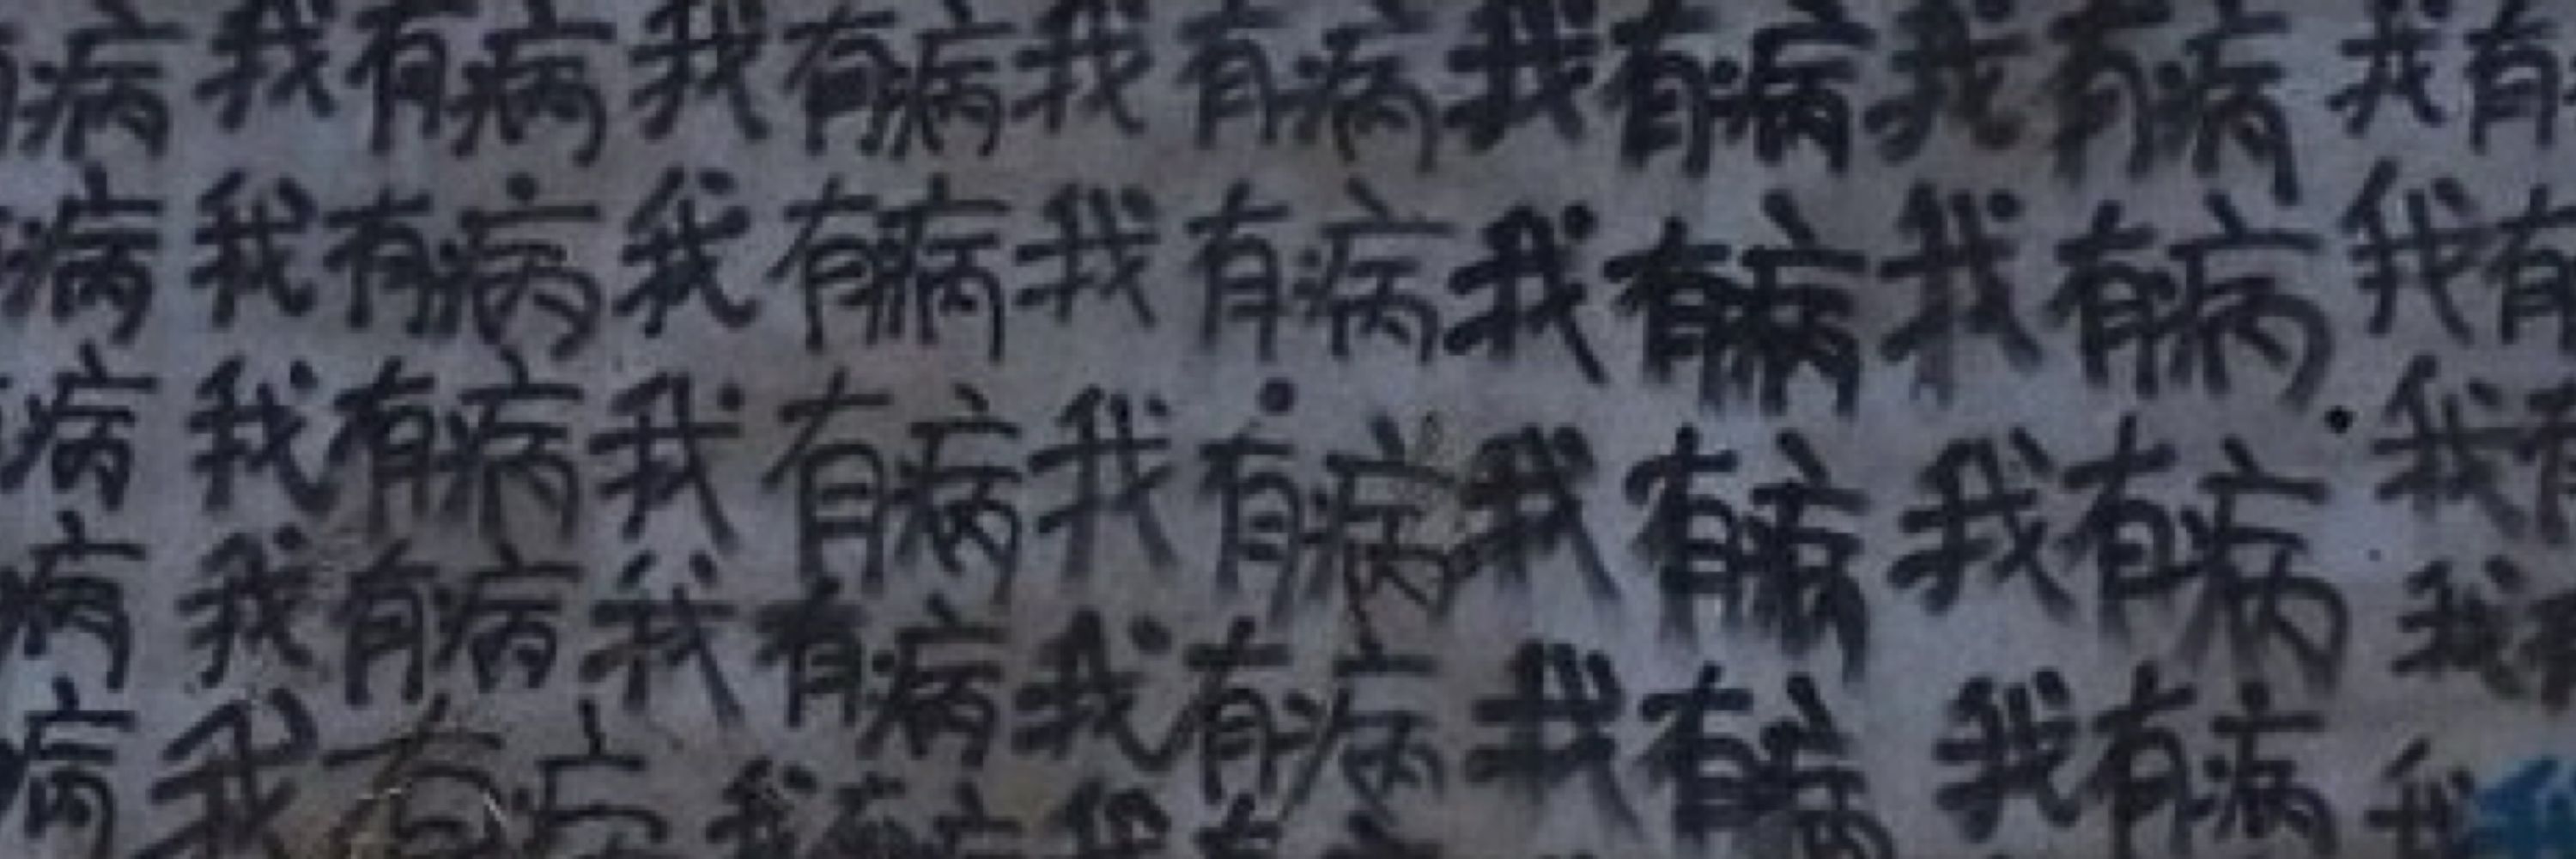 病我有病我有病我有病我有病我有病我有
病我有病我有病我有病我有病我有病我有
病我有病我有病我有病我有病我有病我有
病我有病我有病我有病我有病我有病我
病我有病我有病我有病我有病我